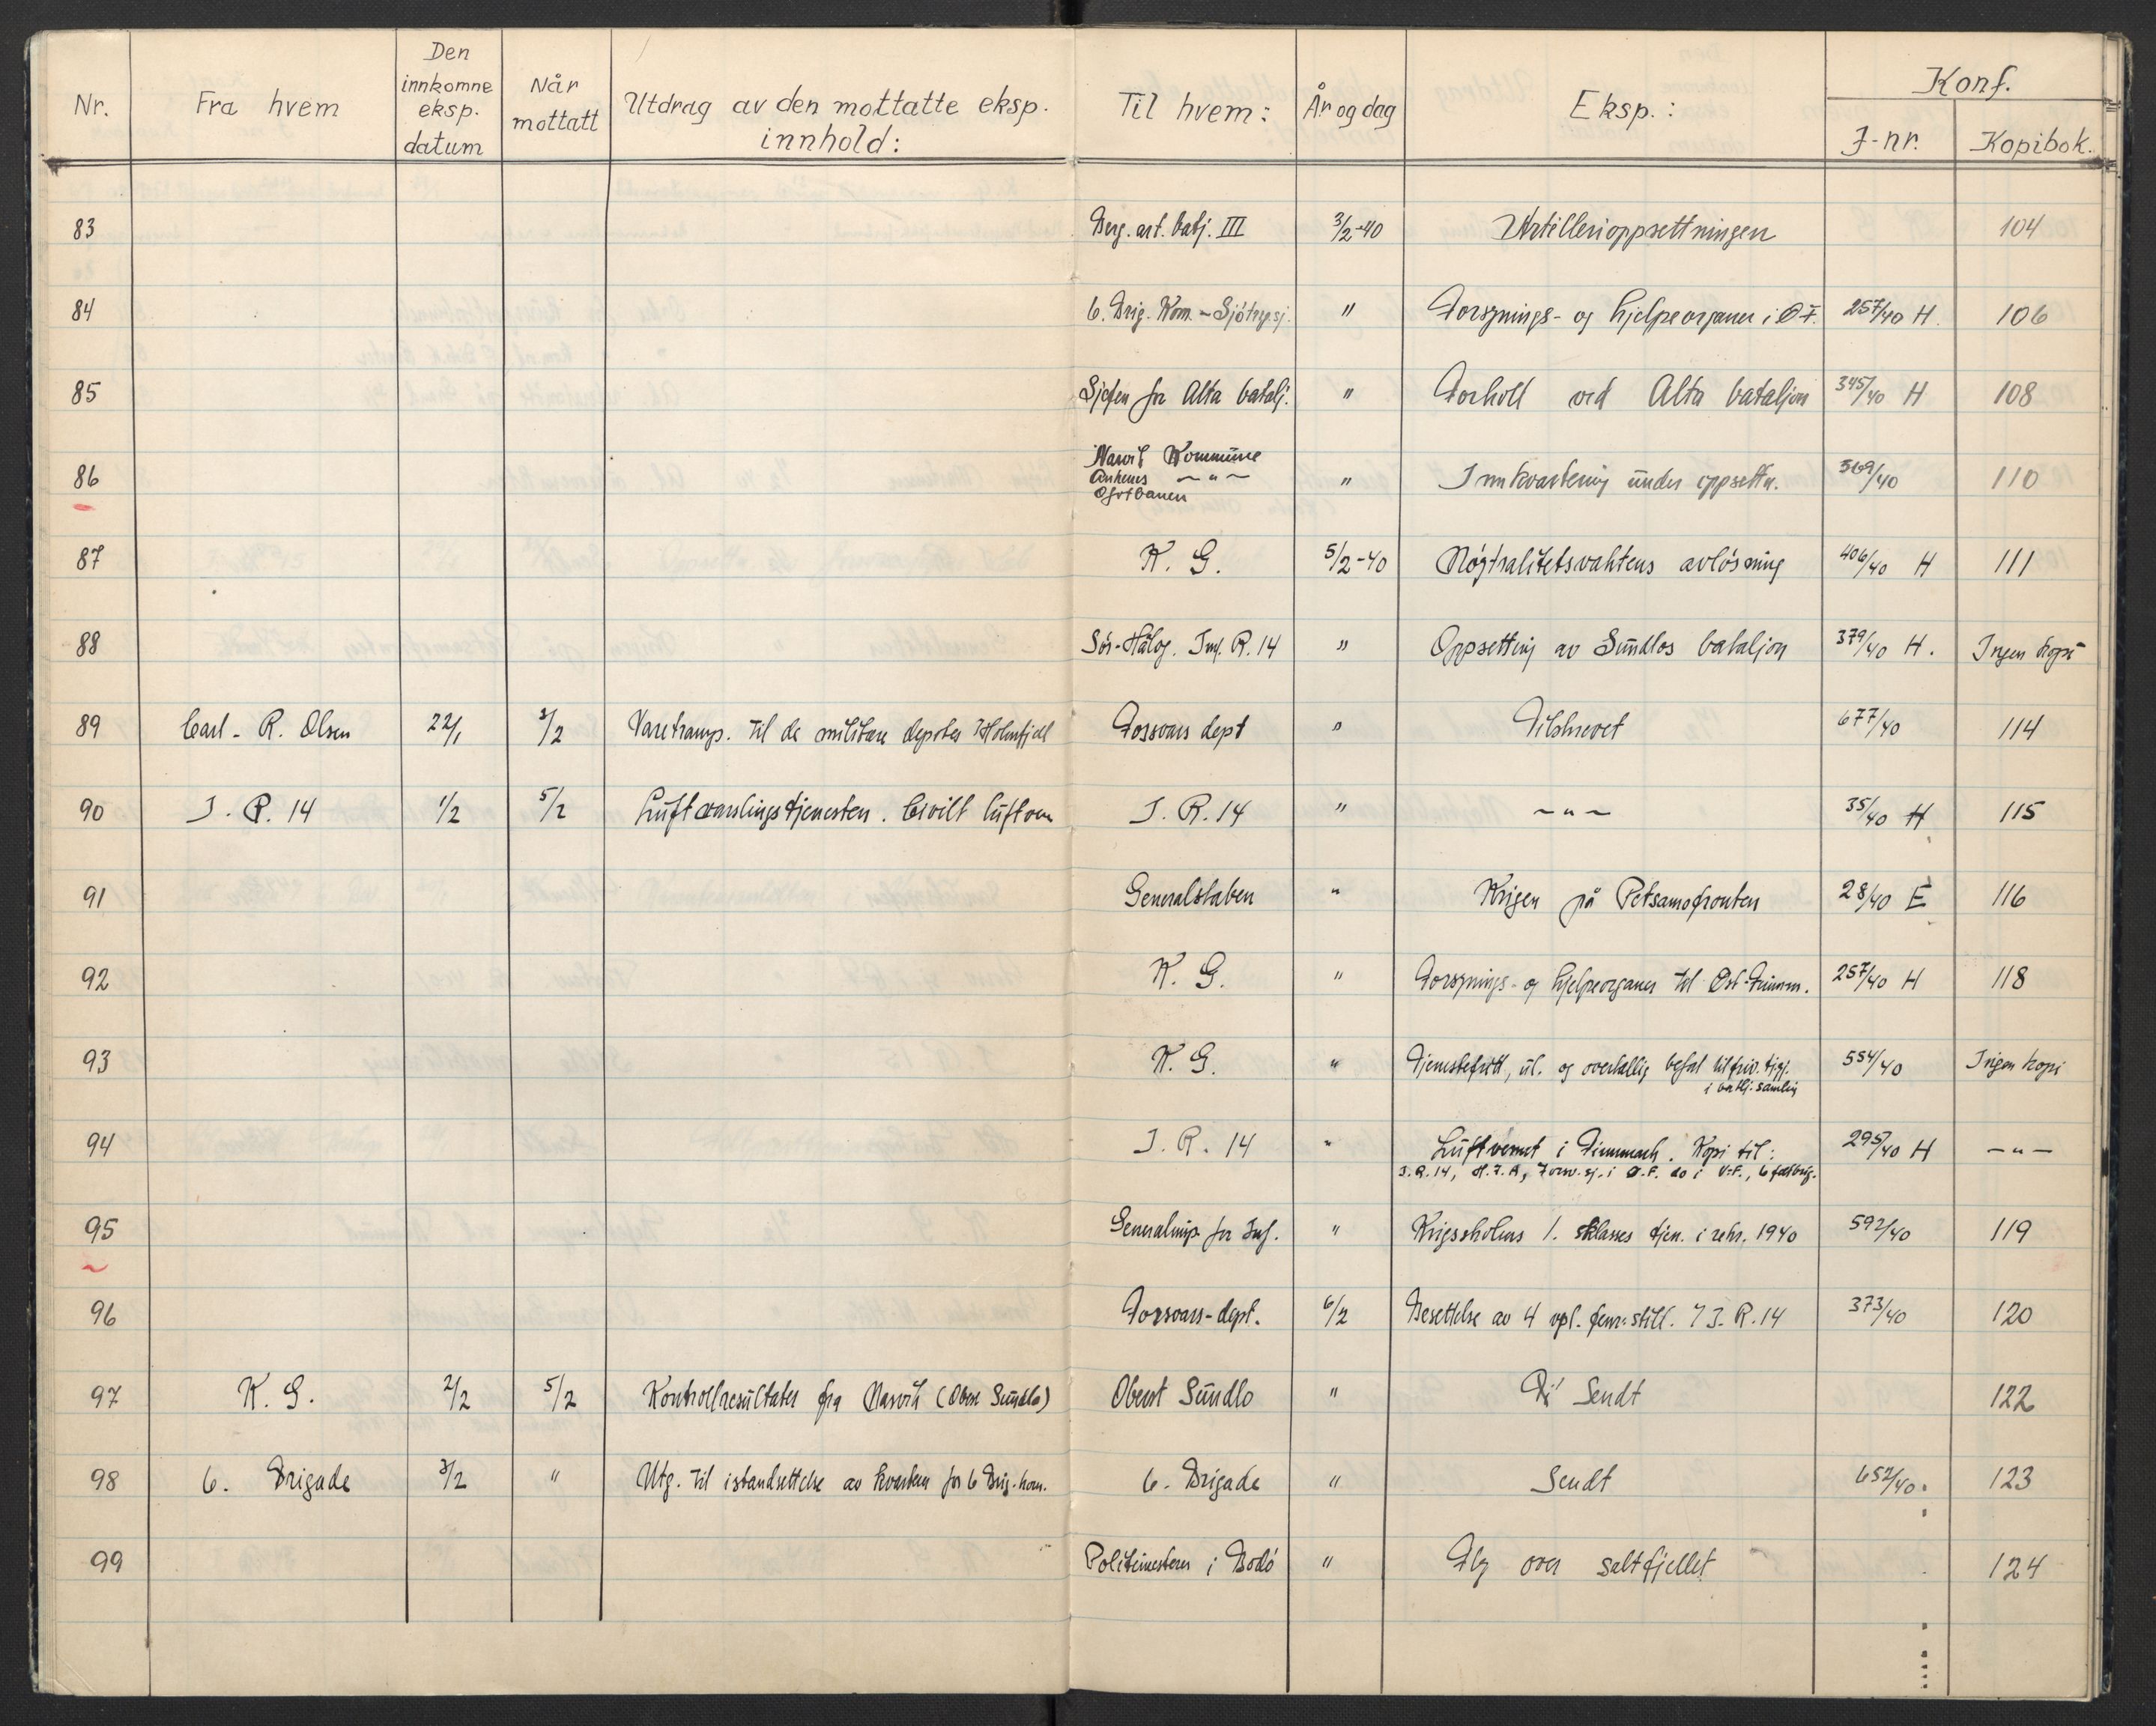 Nr. Fra hvem Den innkomne eksp. datum Når mottatt Utdrag av den mottatte eksp. innhold: Til hvem: År og dag Eksp.: Konf. J-nr. Kopibok.
83 Berg. art. batj. III 3/2-40 Artillerioppsettningen 104
84 6. Brig. Kom. - 〃 Forsynings- og hjelpeorganer i Ø.F. 257/40 H. 106
85 Sjefen for Alta batalj. 〃 Forhold ved Alta bataljon 345/40 H 108
86 Narvik Kommune
Ankenes -〃-
Ofotbanen 〃 Innkvartering under oppsettn. 369/40 110
87 K. G. 5/2-40 Nøytralitetsvaktens avløsning 406/40 H 111
88 Sør-Hålog. Inf. R. 14 〃 Oppsetting av Sundlos bataljon 379/40 H. Ingen kopi
89 Carl - R. Olsen 22/1 3/2 Varetransp. til de militære depoter Holmfjell Forsvars dept 〃 Tilskrevet 677/40 114
90 I. R. 14 1/2 5/2 Luftvarslingstjenesten. Civilt luftvern I. R. 14 〃 -〃- 35/40 H 115
91 Generalstaben 〃 Krigen på Petsamofronten 28/40 E 116
92 K. G. 〃 Forsynings- og hjelpeorganer til Øst-Finnm. 257/40 H 118
93 K. G. 〃 Tjenestefritt, ul. og overtallig befal til friv. tj.
i batlj. samling 554/40 Ingen kopi
94 I. R. 14 〃 Luftvernet i Finnmark. Kopi til:
I.R.14, H.I.A, Forsv. sj. i Ø.F. do i V.F., 6 feltbrig. 295/40 H -〃-
95 Generalinsp. for Inf. 〃 Krigsskolens 1. klasses tjen. i rekr. 1940 592/40 119
96 Forsvars-dept. 6/2 Besettelse av 4 vpl. fenr. still. I I. R. 14 373/40 120
97 K. G. 2/2 5/2 Kontrollresultater fra Narvik (Oberst Sundlo) Oberst Sundlo 〃 Til Sendt 122
98 6. Brigade 3/2 〃 Utg. til istandsettelse av kvarter for 6 Brig. kom. 6. Brigade 〃 Sendt 652/40. 123
99 Politimesteren i Bodö 〃 Fly over Saltfjellet 124